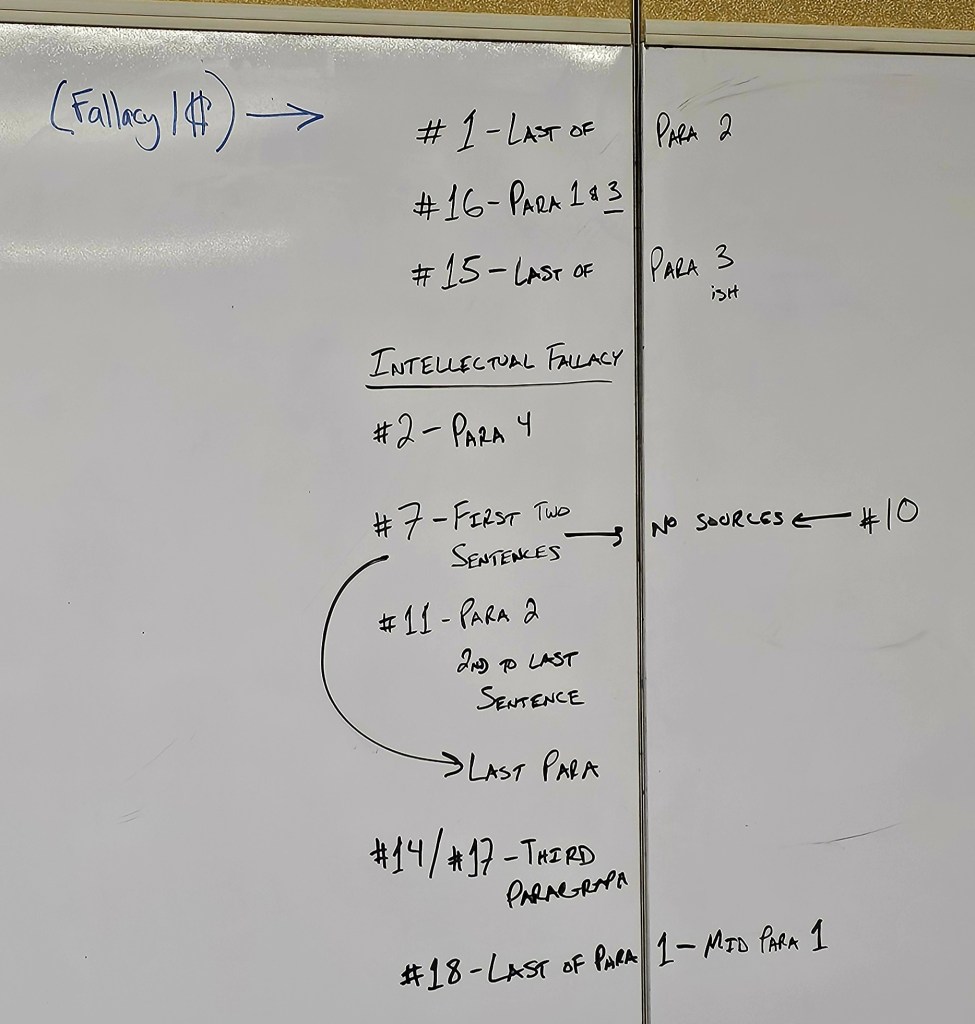 (Fallacy / $) →
# 1 - LAST OF PARA 2
#16 - PARA 1 & 3
#15 - LAST OF PARA 3
ISH
INTELLECTUAL FALLACY
#2 - PARA 4
#7 - FIRST TWO → NO SOURCES ← #10
SENTENCES
#11 - PARA 2
2ND TO LAST
SENTENCE
→ LAST PARA
#14/#17 - THIRD
PARAGRAPH
#18 - LAST OF PARA 1 - MID PARA 1